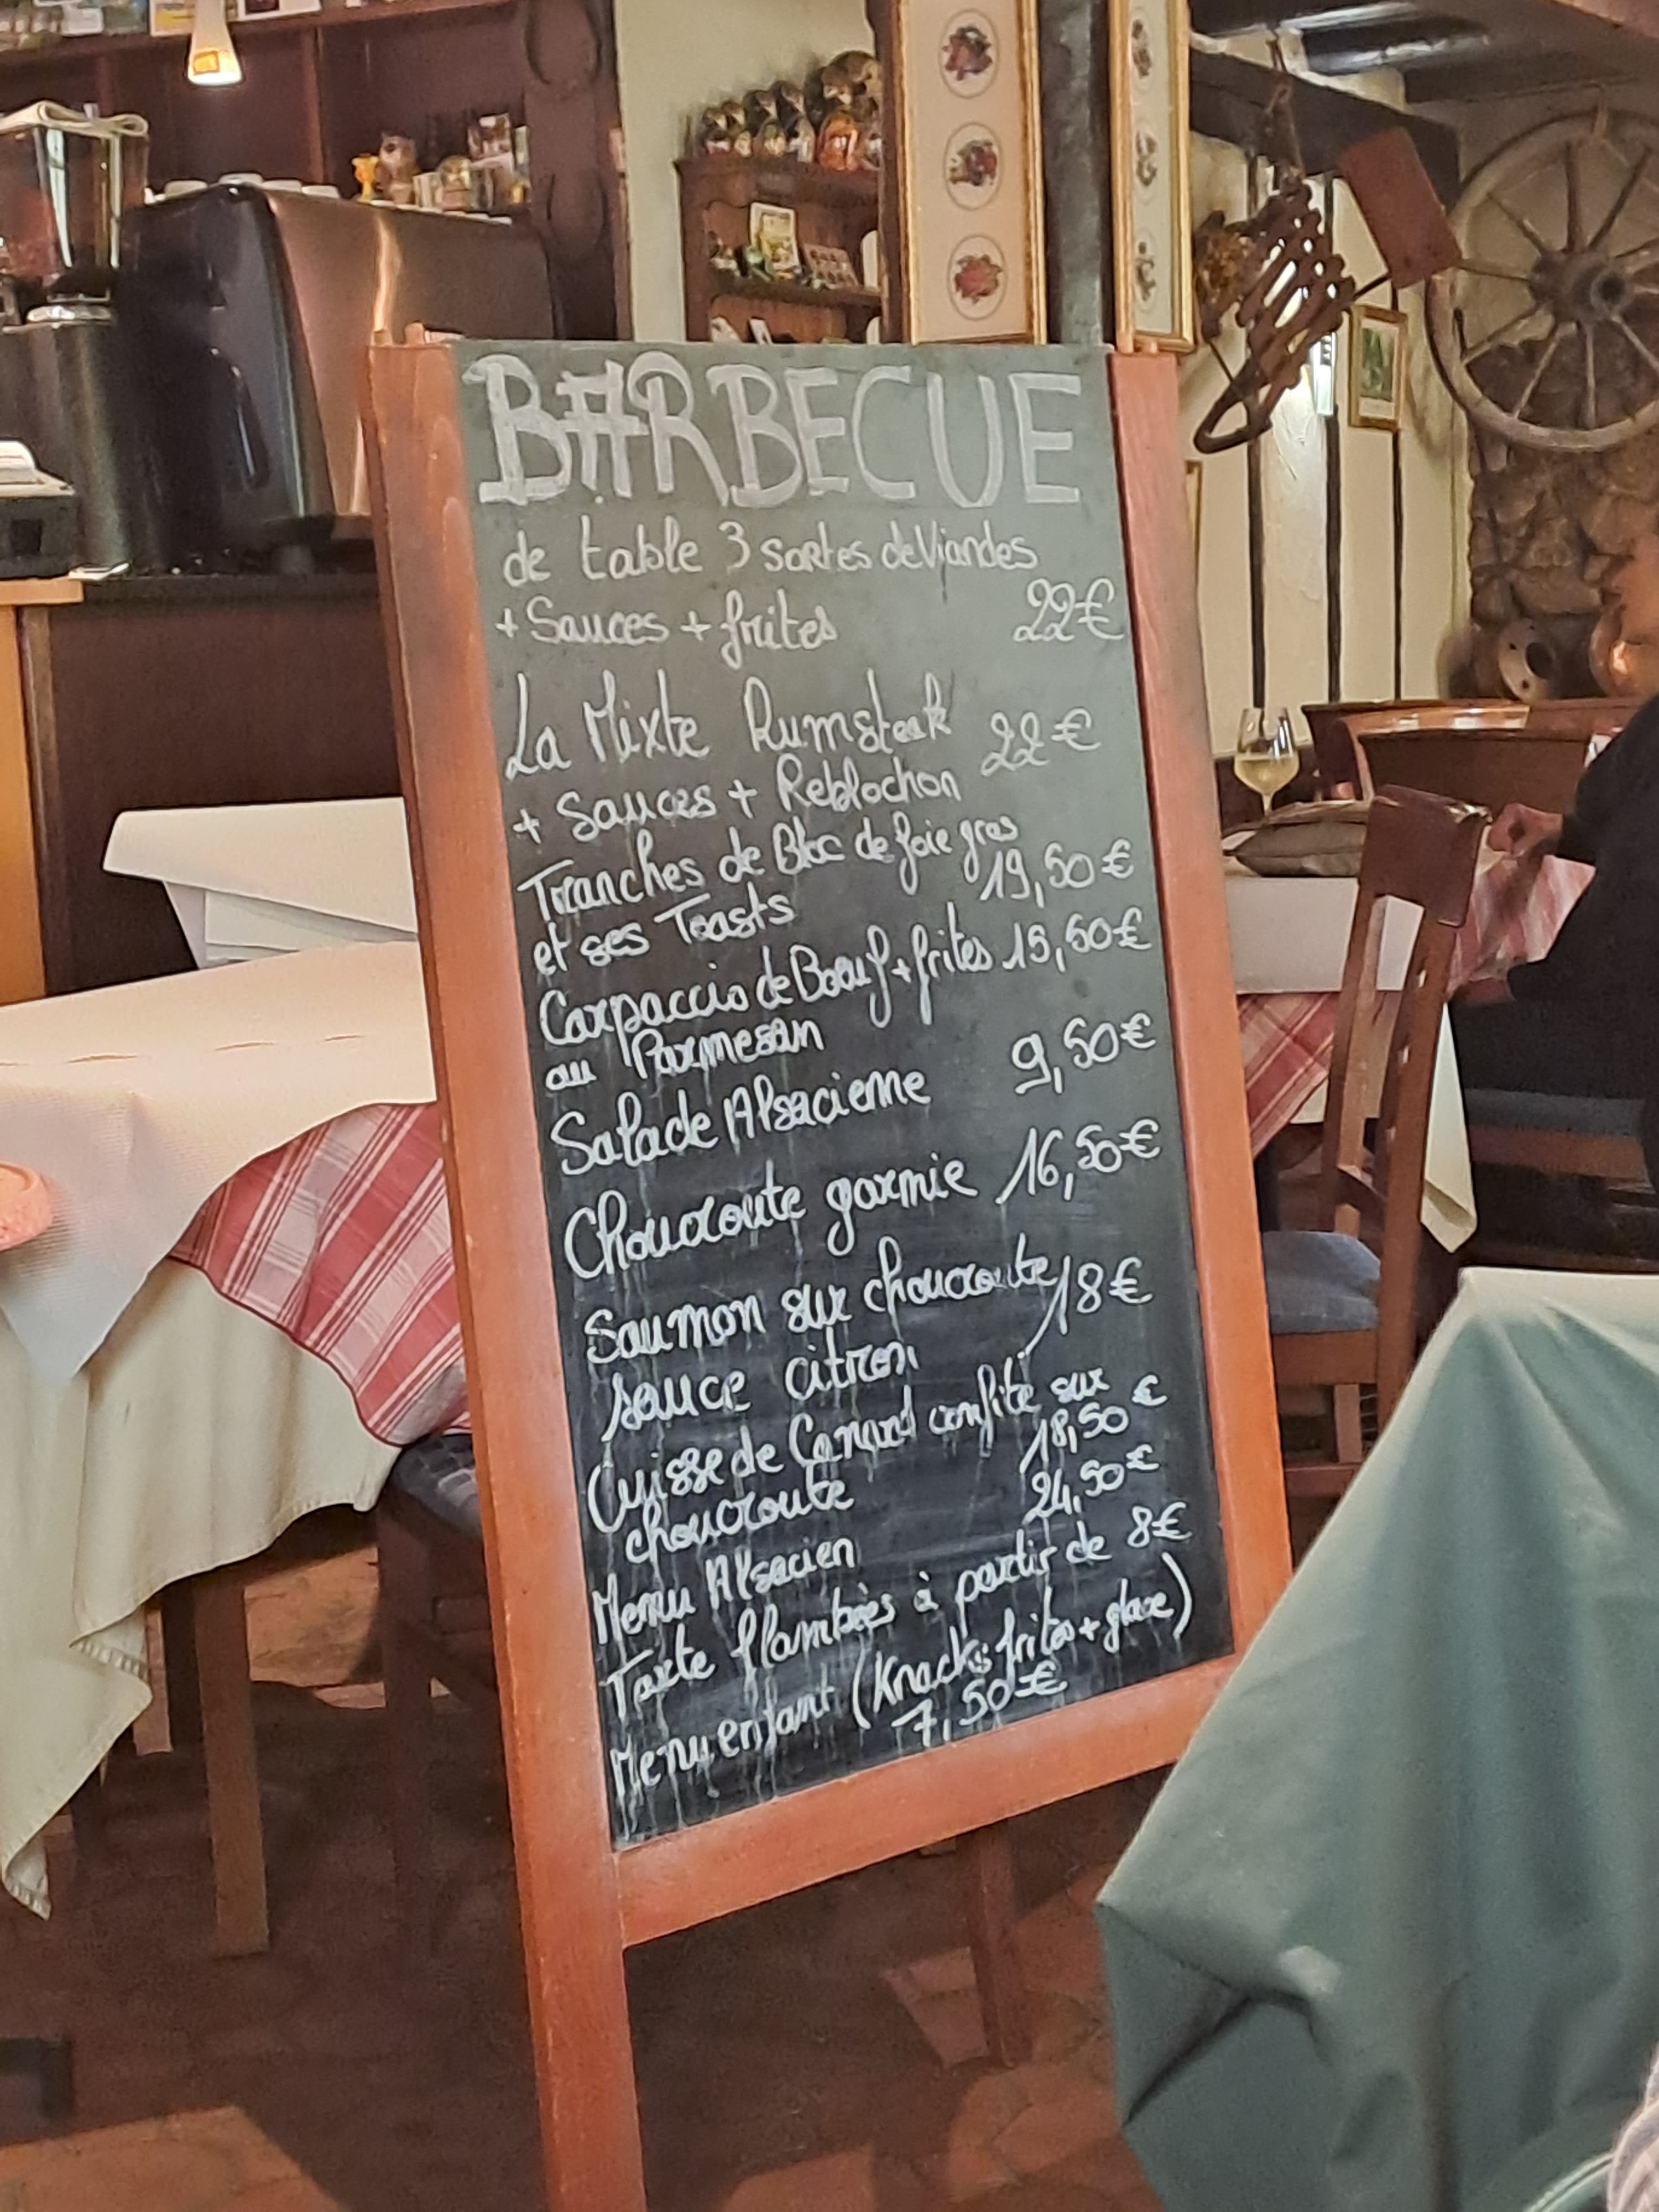 BARBECUE
de table 3 sortes de Viandes
+ Sauces + frites 22€
La Mixte Rumsteak 22€
+ Sauces + Reblochon
Tranches de Bloc de foie gras
et ses Toasts 19,50€
Carpaccio de Boeuf + frites 15,50€
au Parmesan
Salade Alsacienne 9,50€
Choucroute garnie 16,50€
Saumon sur choucroute 18€
sauce citron
Cuisse de Canard confite sur
choucroute 18,50€
Menu Alsacien 24,50€
Tarte flambées à partir de 8€
Menu enfant (Knacks frites + glace)
7,50€